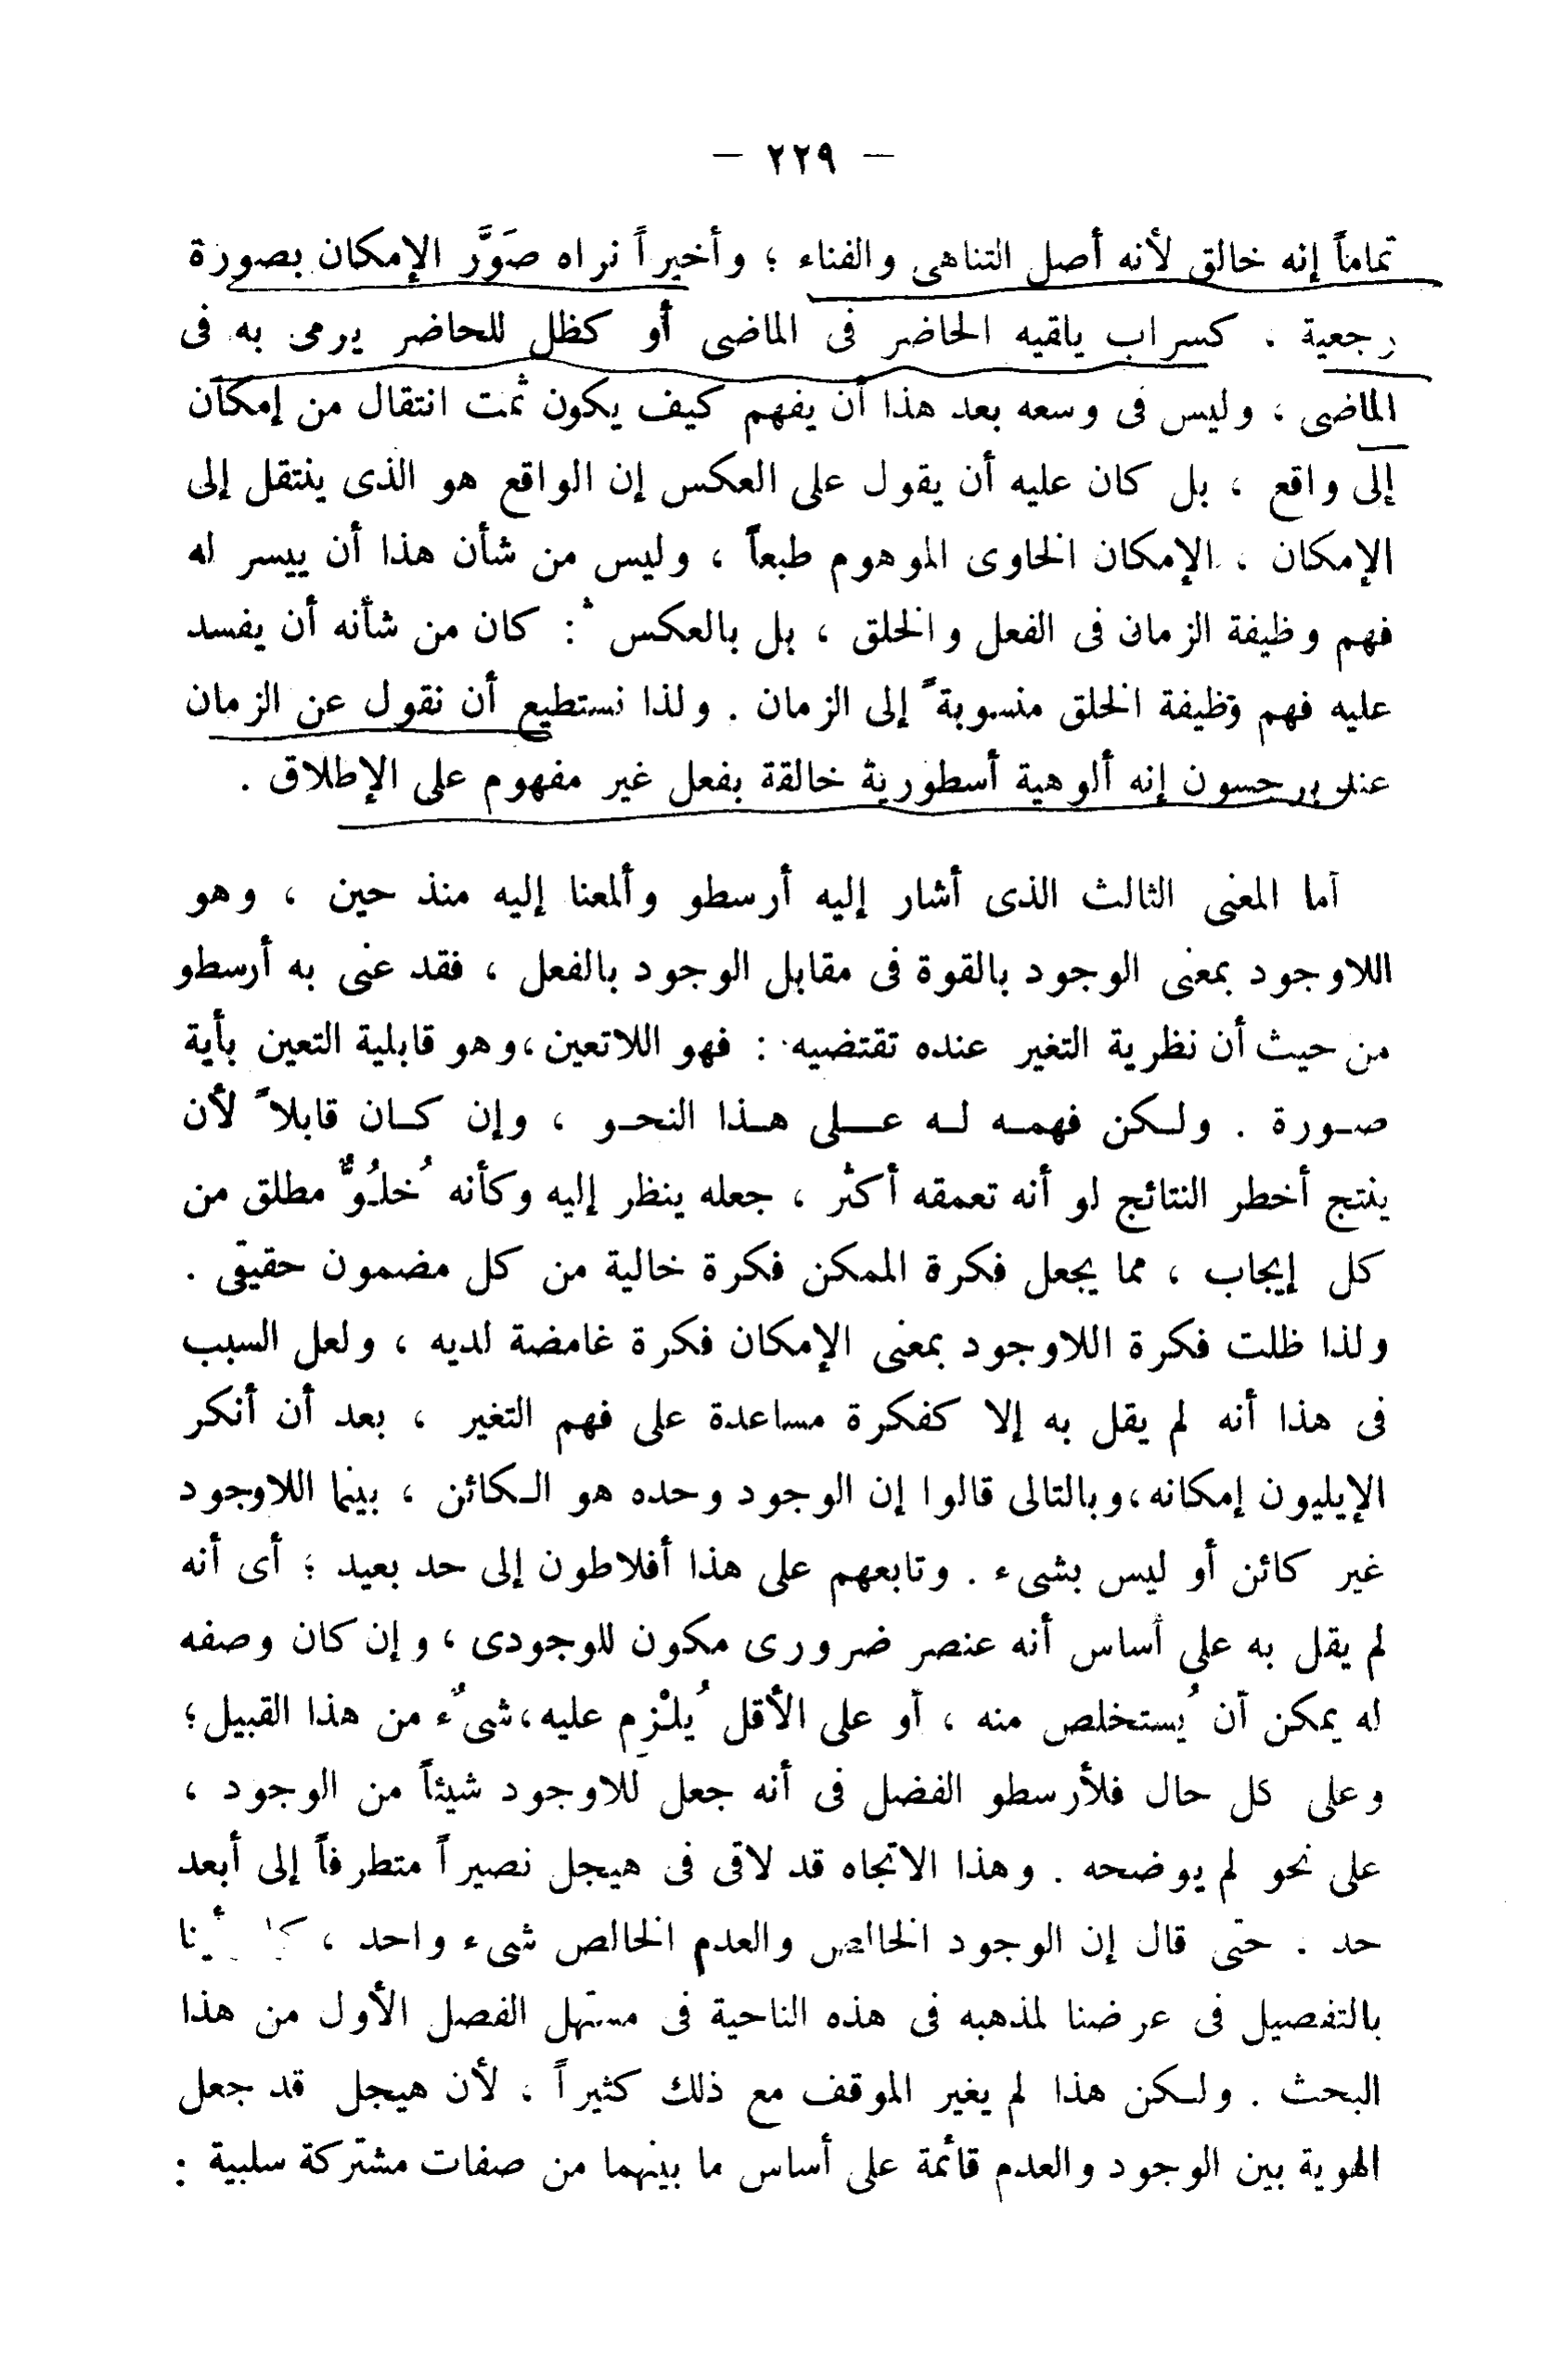 — ٢٢٩ —
تماماً إنه خالق لأنه أصل التناهى والفناء ؛ وأخيراً نراه صَوَّر الإمكان بصورة
رجعية ، كسراب يلقيه الحاضر فى الماضى أو كظل للحاضر يرمى به فى
الماضى ، وليس فى وسعه بعد هذا أن يفهم كيف يكون ثمت انتقال من إمكان
إلى واقع ، بل كان عليه أن يقول على العكس إن الواقع هو الذى ينتقل إلى
الإمكان ، الإمكان الخاوى الموهوم طبعاً ، وليس من شأن هذا أن ييسر له
فهم وظيفة الزمان فى الفعل والخلق ، بل بالعكس : كان من شأنه أن يفسد
عليه فهم وظيفة الخلق منسوبةً إلى الزمان . ولذا نستطيع أن نقول عن الزمان
عند برجسون إنه ألوهية أسطورية خالقة بفعل غير مفهوم على الإطلاق .
أما المعنى الثالث الذى أشار إليه أرسطو وألمعنا إليه منذ حين ، وهو
اللاوجود بمعنى الوجود بالقوة فى مقابل الوجود بالفعل ، فقد عنى به أرسطو
من حيث أن نظرية التغير عنده تقتضيه : فهو اللاتعين ، وهو قابلية التعين بأية
صورة . ولكن فهمه له على هذا النحو ، وإن كان قابلاً لأن
ينتج أخطر النتائج لو أنه تعمقه أكثر ، جعله ينظر إليه وكأنه خُلُوٌّ مطلق من
كل إيجاب ، مما يجعل فكرة الممكن فكرة خالية من كل مضمون حقيقى .
ولذا ظلت فكرة اللاوجود بمعنى الإمكان فكرة غامضة لديه ، ولعل السبب
فى هذا أنه لم يقل به إلا كفكرة مساعدة على فهم التغير ، بعد أن أنكر
الإيليون إمكانه ، وبالتالى قالوا إن الوجود وحده هو الكائن ، بينما اللاوجود
غير كائن أو ليس بشىء . وتابعهم على هذا أفلاطون إلى حد بعيد ؛ أى أنه
لم يقل به على أساس أنه عنصر ضرورى مكون للوجودى ، وإن كان وصفه
له يمكن أن يُستخلص منه ، أو على الأقل يُلْزِم عليه ، شىءٌ من هذا القبيل ؛
وعلى كل حال فلأرسطو الفضل فى أنه جعل للاوجود شيئاً من الوجود ،
على نحو لم يوضحه . وهذا الاتجاه قد لاقى فى هيجل نصيراً متطرفاً إلى أبعد
حد . حتى قال إن الوجود الخالص والعدم الخالص شىء واحد ،
بالتفصيل فى عرضنا لمذهبه فى هذه الناحية فى مستهل الفصل الأول من هذا
البحث . ولكن هذا لم يغير الموقف مع ذلك كثيراً ، لأن هيجل قد جعل
الهوية بين الوجود والعدم قائمة على أساس ما بينهما من صفات مشتركة سلبية :